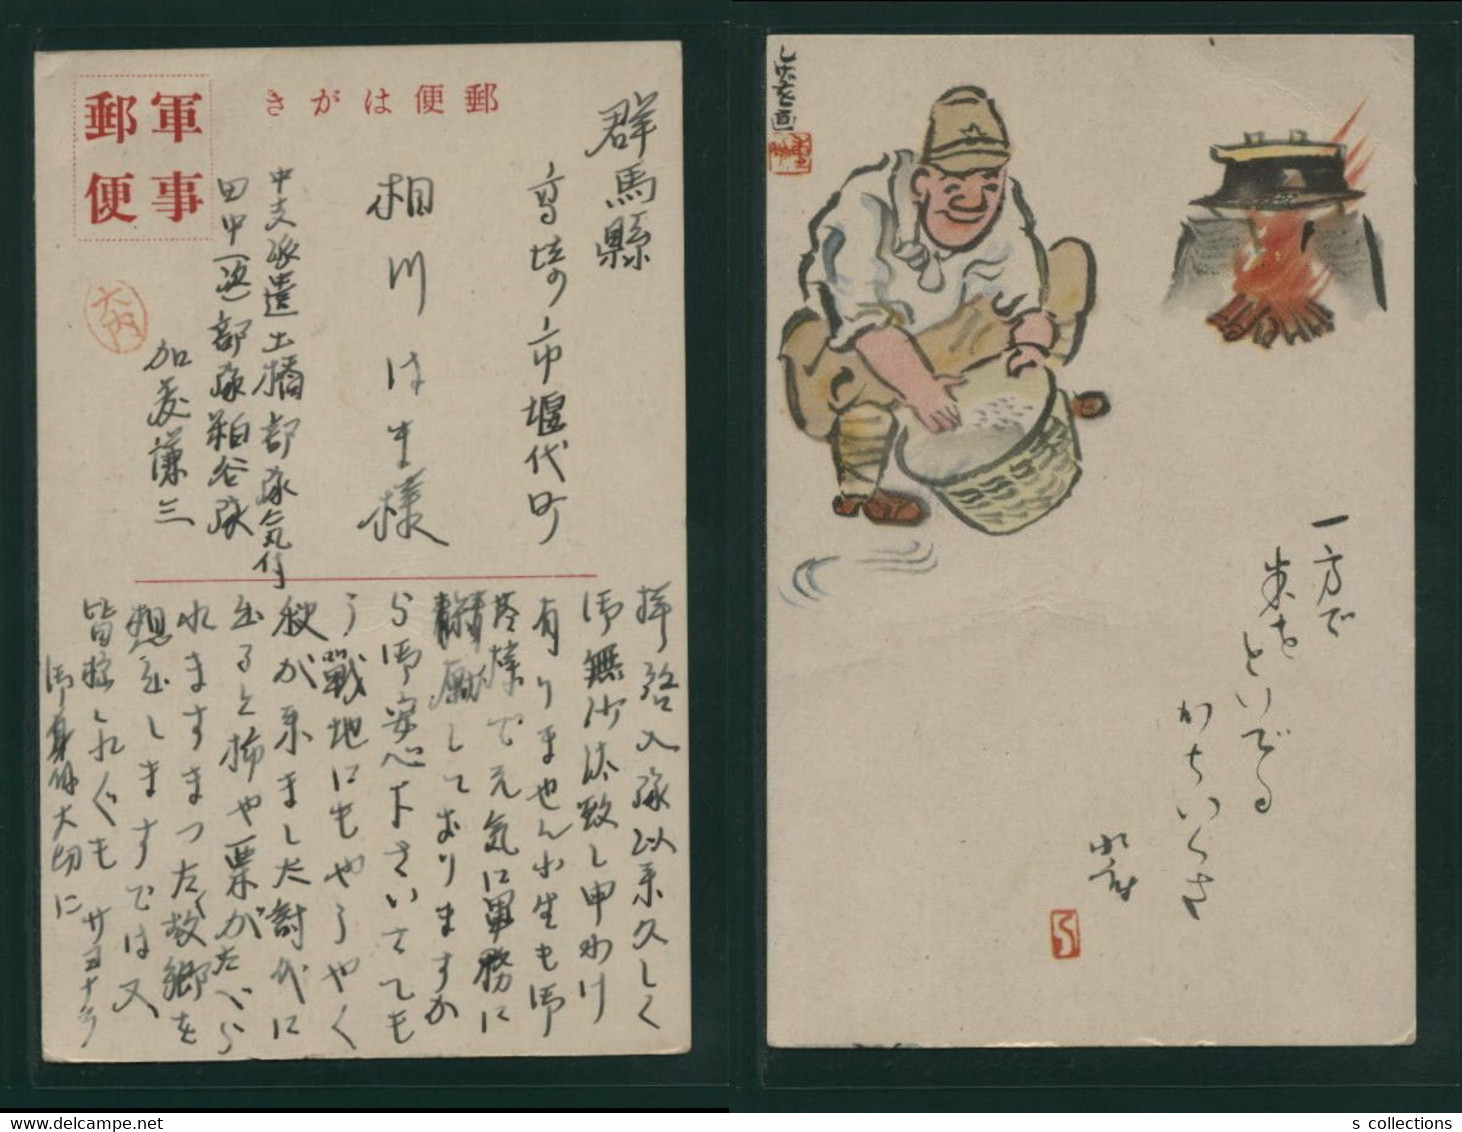 郵便はがき
軍事
郵便
群馬縣
高崎市堰代町
相川はま様
中支派遣土橋部隊気付
田中(憑)部隊粕谷隊
加麦謙三
大内
拝啓入隊以来久しく
御無沙汰致し申わけ
有りません小生も御
蔭様で元気に軍務に
精励しておりますか
ら御安心下さいさても
う戦地にもやうやく
秋が来ました討伐に
出ると柿や栗がたべら
れますまつたく故郷を
想出しますでは又
皆様しれぐも
御身体大切に
サヨナラ
一方で
米をといでる
かちいくさ
s collections